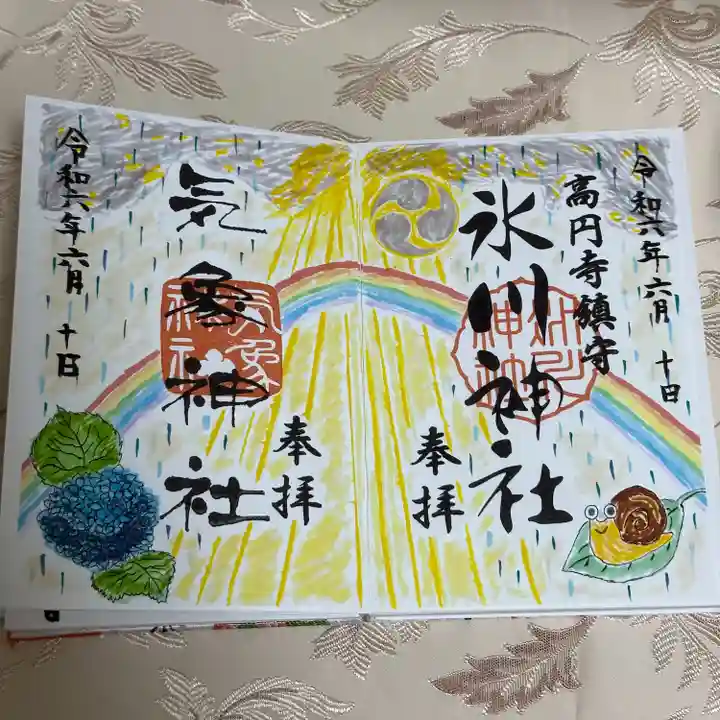 令和六年六月十日
高円寺鎮守
氷川神社
奉拝
奉拝
気象神社
気象神社
令和六年六月十日